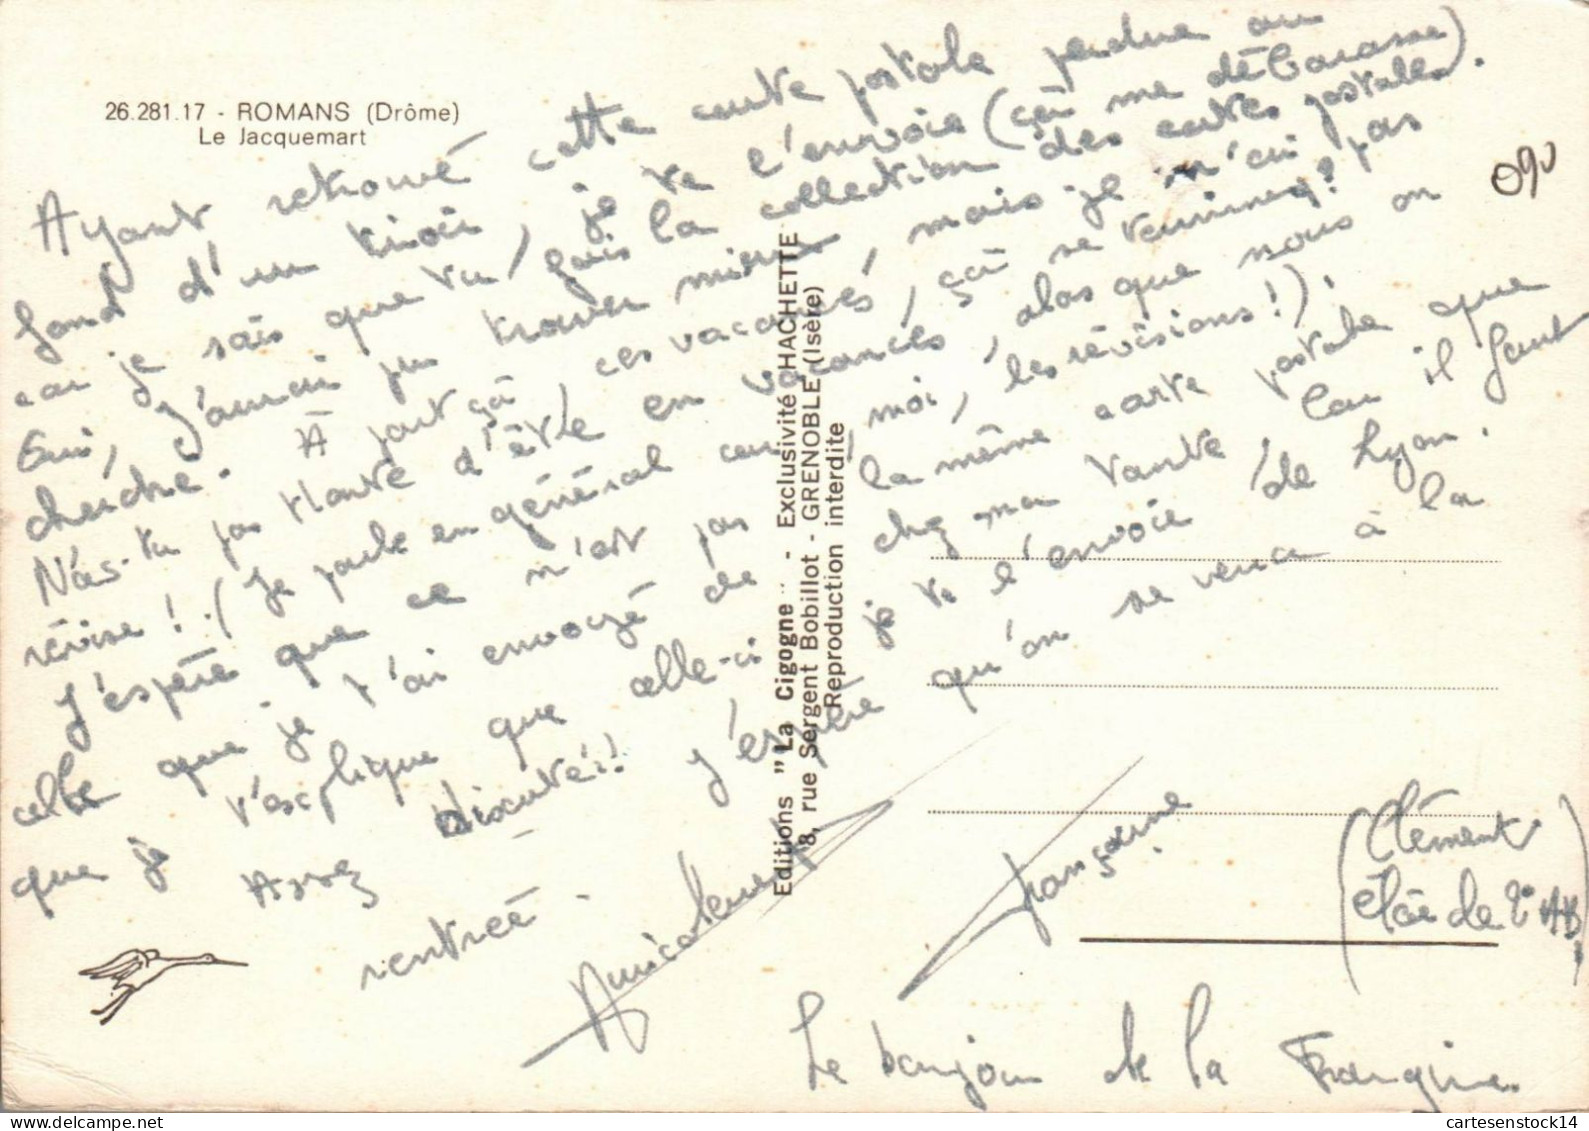 26.281.17 - ROMANS (Drôme)
Le Jacquemart
Ayant retrouvé cette carte postale perdue au
fond d'un tiroir, je te l'envoie (çà me débarasse)
car je sais que tu fais la collection des cartes postales.
Oui, j'aurai pu trouver mieux, mais je n'ai pas
cherché. A part çà, ces vacances, çà se termine?
N'as-tu pas honte d'être en vacances, alors que nous on
révise! (Je parle en général car moi, les révisions!).
J'espère que ce n'est pas la même carte postale que
celle que je t'ai envoyé de chez ma tante, car il faut
que je t'explique que celle-ci je te l'envoie de Lyon.
Assez discuté!! J'espère qu'on se verra à la
rentrée.
Amicalement
Françoise
(Clément
de 2° AB)
Le bonjour de la Frangine
Editions "La Cigogne" - Exclusivité HACHETTE
8, rue Sergent Bobillot - GRENOBLE (Isère)
Reproduction interdite
090
cartesenstock14